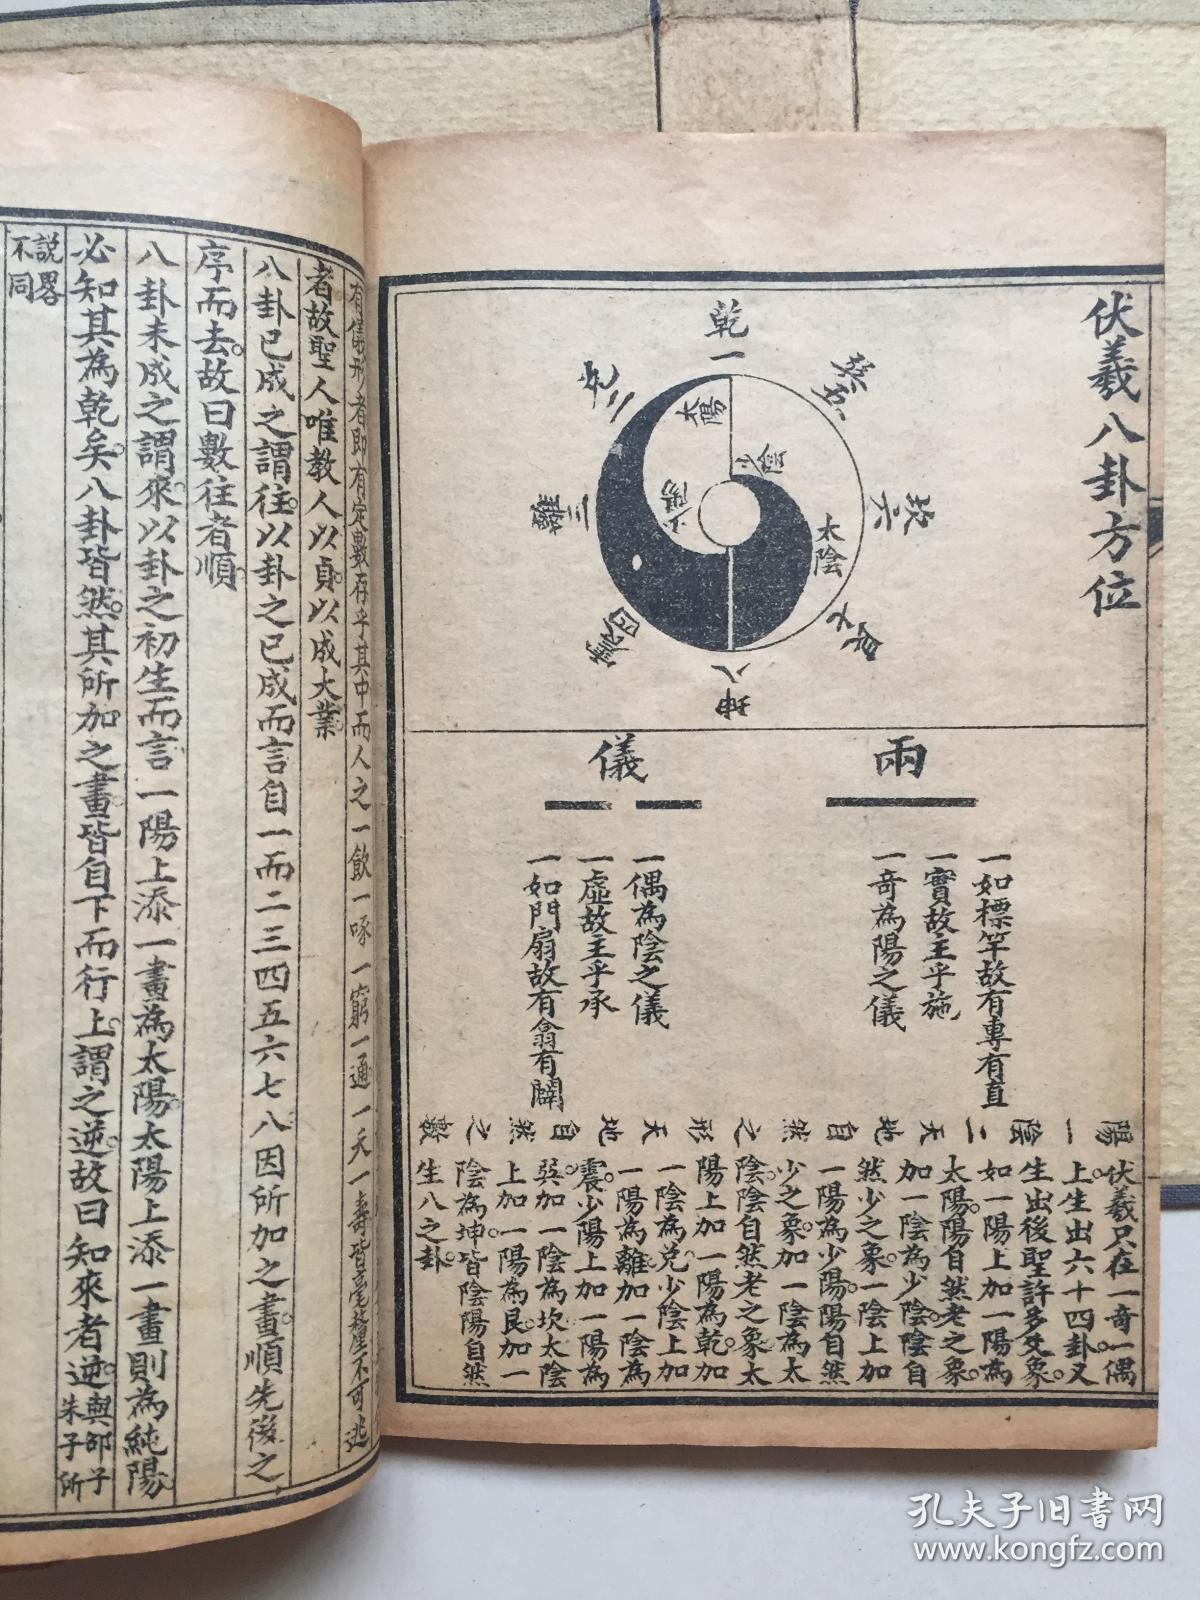 伏羲八卦方位
乾一
兌二
離三
震四
巽五
坎六
艮七
坤八
太陽
少陰
少陽
太陰
兩
儀
一如標竿故有專有直
一實故主乎施
一奇為陽之儀
一偶為陰之儀
一虛故主乎承
一如門扇故有翕有闢
陽一陰二天地自然之形天地自然之數
伏羲只在一奇一偶
上生出六十四卦又
生出後聖許多爻象
如一陽上加一陽為
太陽陽自然老之象
加一陰為少陰陰自
然少之象一陰上加
一陽為少陽陽自然
少之象加一陰為太
陰陰自然老之象太
陽上加一陽為乾加
一陰為兌少陰上加
一陽為離加一陰為
震少陽上加一陽為
巽加一陰為坎太陰
上加一陽為艮加一
陰為坤皆陰陽自然
生八之卦
有儀形者即有定數存乎其中而人之一飲一啄一窮一通一夭一壽皆毫釐不可逃
者故聖人唯教人以貞以成大業
八卦已成之謂往以卦之已成而言自一而二三四五六七八因所加之畫順先後之
序而去故曰數往者順
八卦未成之謂來以卦之初生而言一陽上添一畫為太陽太陽上添一畫則為純陽
必知其為乾矣八卦皆然其所加之畫皆自下而行上謂之逆故曰知來者逆與邵子朱子所
說畧不同
孔夫子旧书网
www.kongfz.com